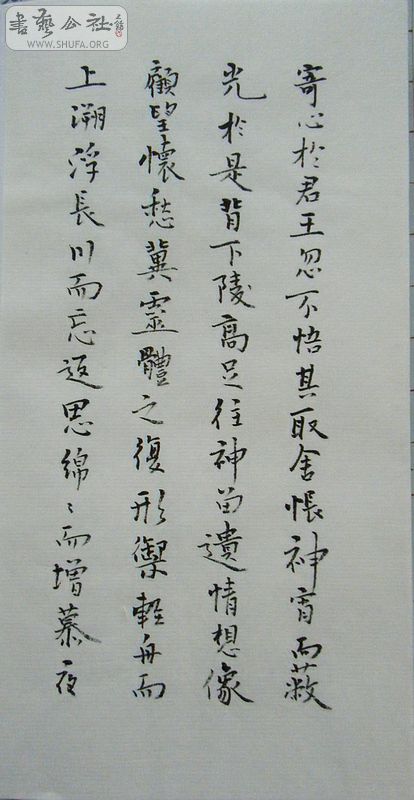 書藝公社
WWW.SHUFA.ORG
寄心於君王忽不悟其取舍悵神宵而蔽
光於是背下陵高足往神留遺情想像
顧望懷愁冀靈體之復形禦輕舟而
上溯浮長川而忘返思綿〻而增慕夜